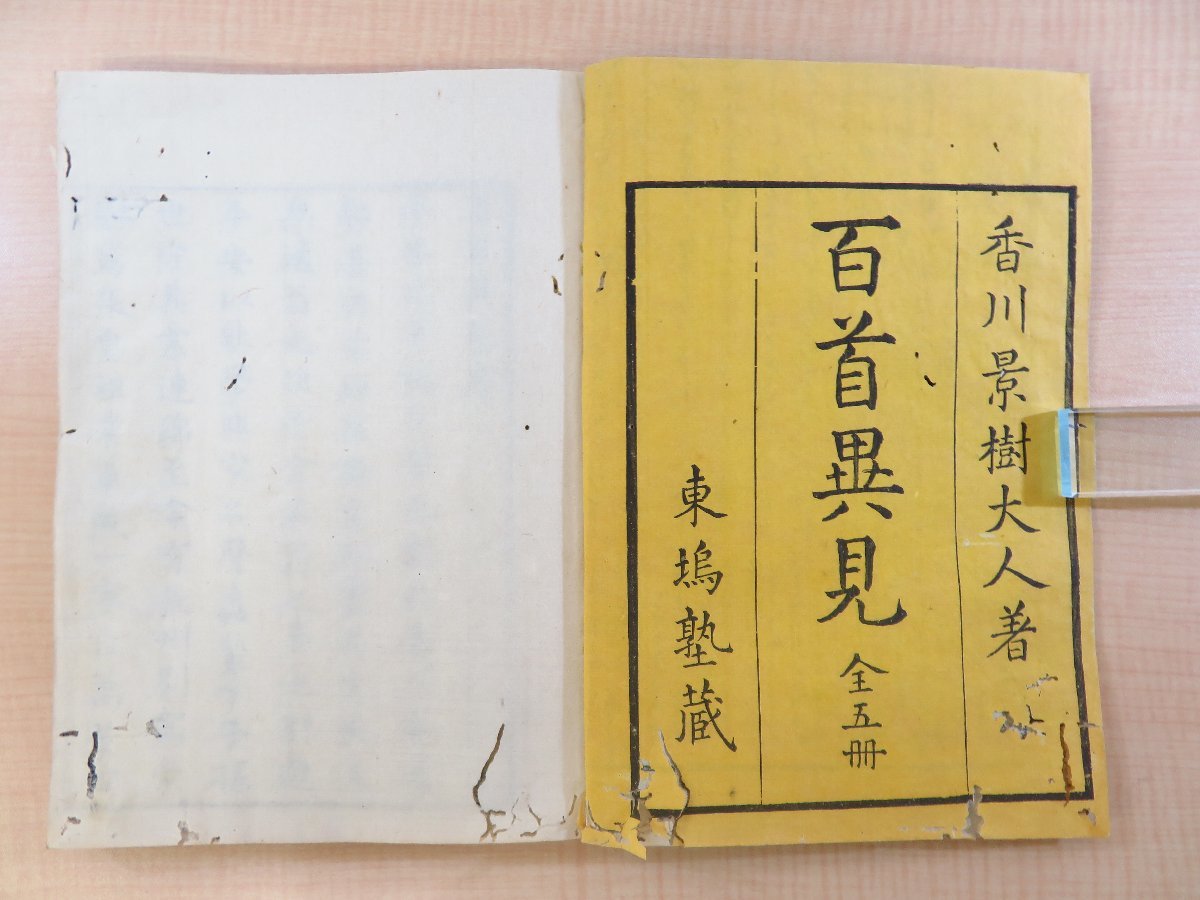 香川景樹大人著
百首異見 全五冊
東塢塾蔵